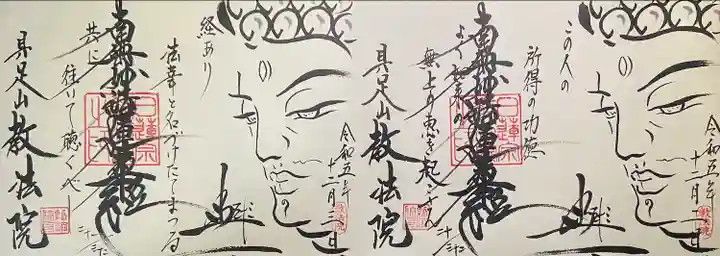 令和五年
十二月一日
この人の
所得の功徳
無上の恵を起こさん
南無妙法蓮華経
日蓮宗
具足山 教法院
令和五年
十二月三日
経あり
法華と名づけたてまつる
共に往いて聴くべし
南無妙法蓮華経
日蓮宗
具足山 教法院